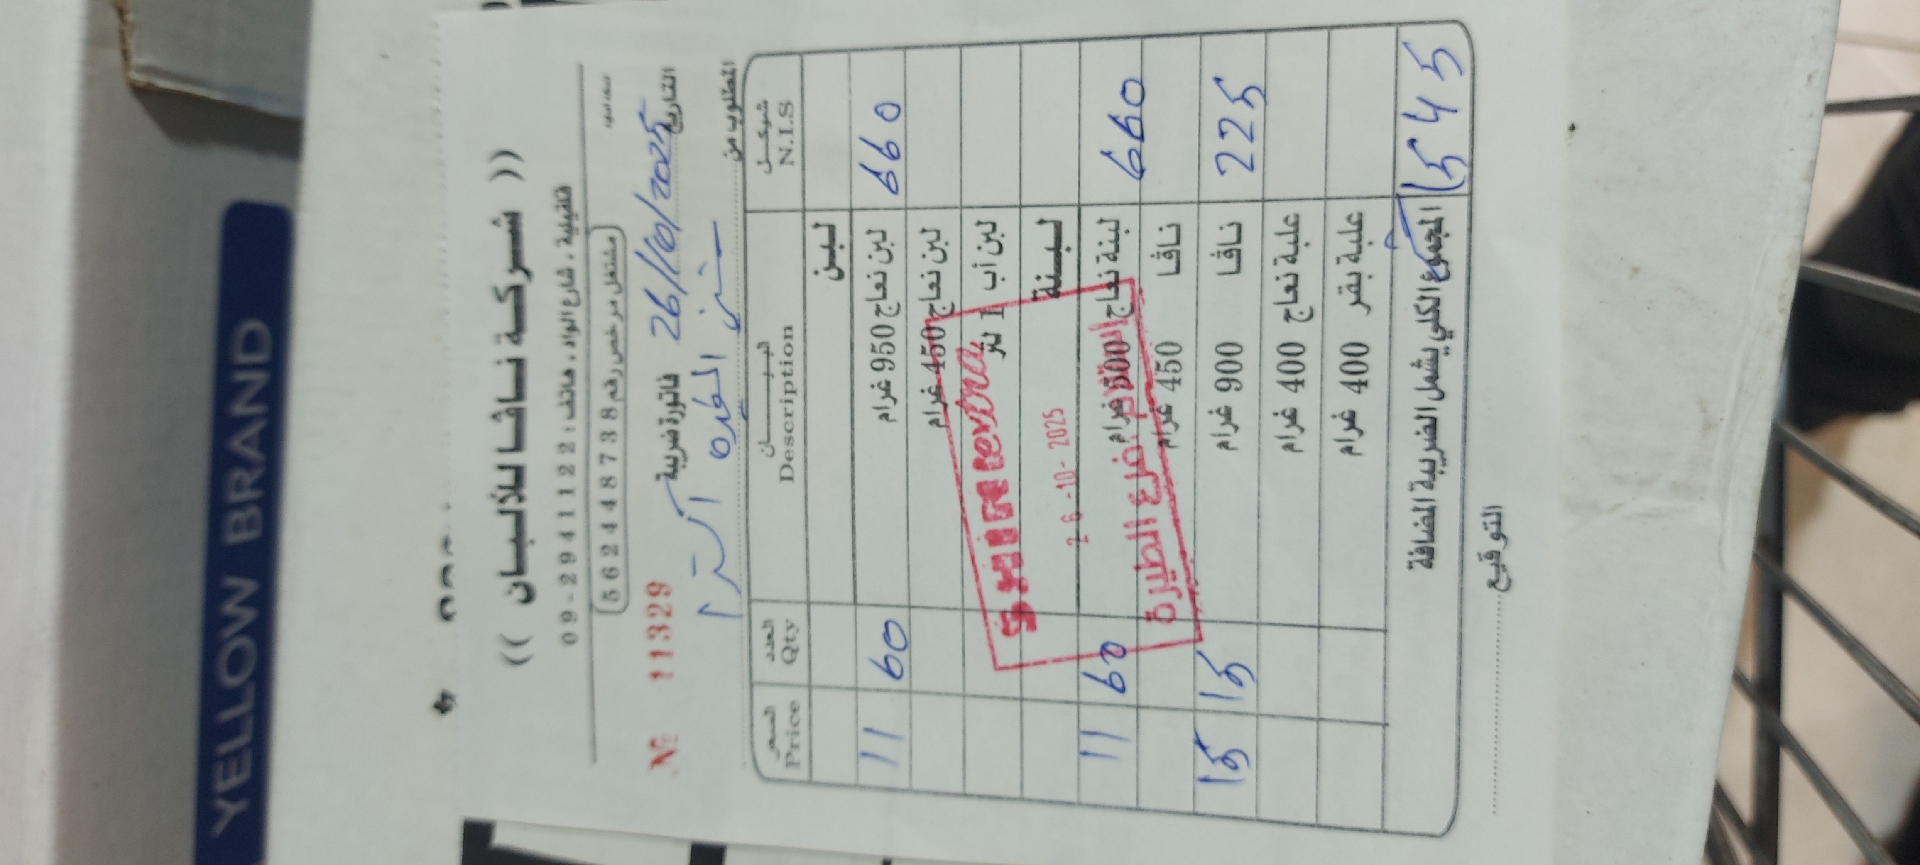 YELLOW BRAND
(( شركة نافا للألبان ))
قلقيلية ، شارع الواد ، هاتف : 09-2941122
مشتغل مرخص رقم 562448738
№ 11329
فاتورة ضريبة
التاريخ 26/10/2025
المطلوب من
السعر العدد البيــــان شيكل
Price Qty Description N.I.S
لبن
11 60 لبن نعاج 950 غرام 660
لبن نعاج 450 غرام
لبن أب 1 لتر
لبنة
11 60 لبنة نعاج 500 غرام 660
نافا 450 غرام
15 15 نافا 900 غرام 225
علبة نعاج 400 غرام
علبة بقر 400 غرام
المجموع الكلي يشمل الضريبة المضافة 1545
26-10-2025
فرع الطيرة
التوقيع